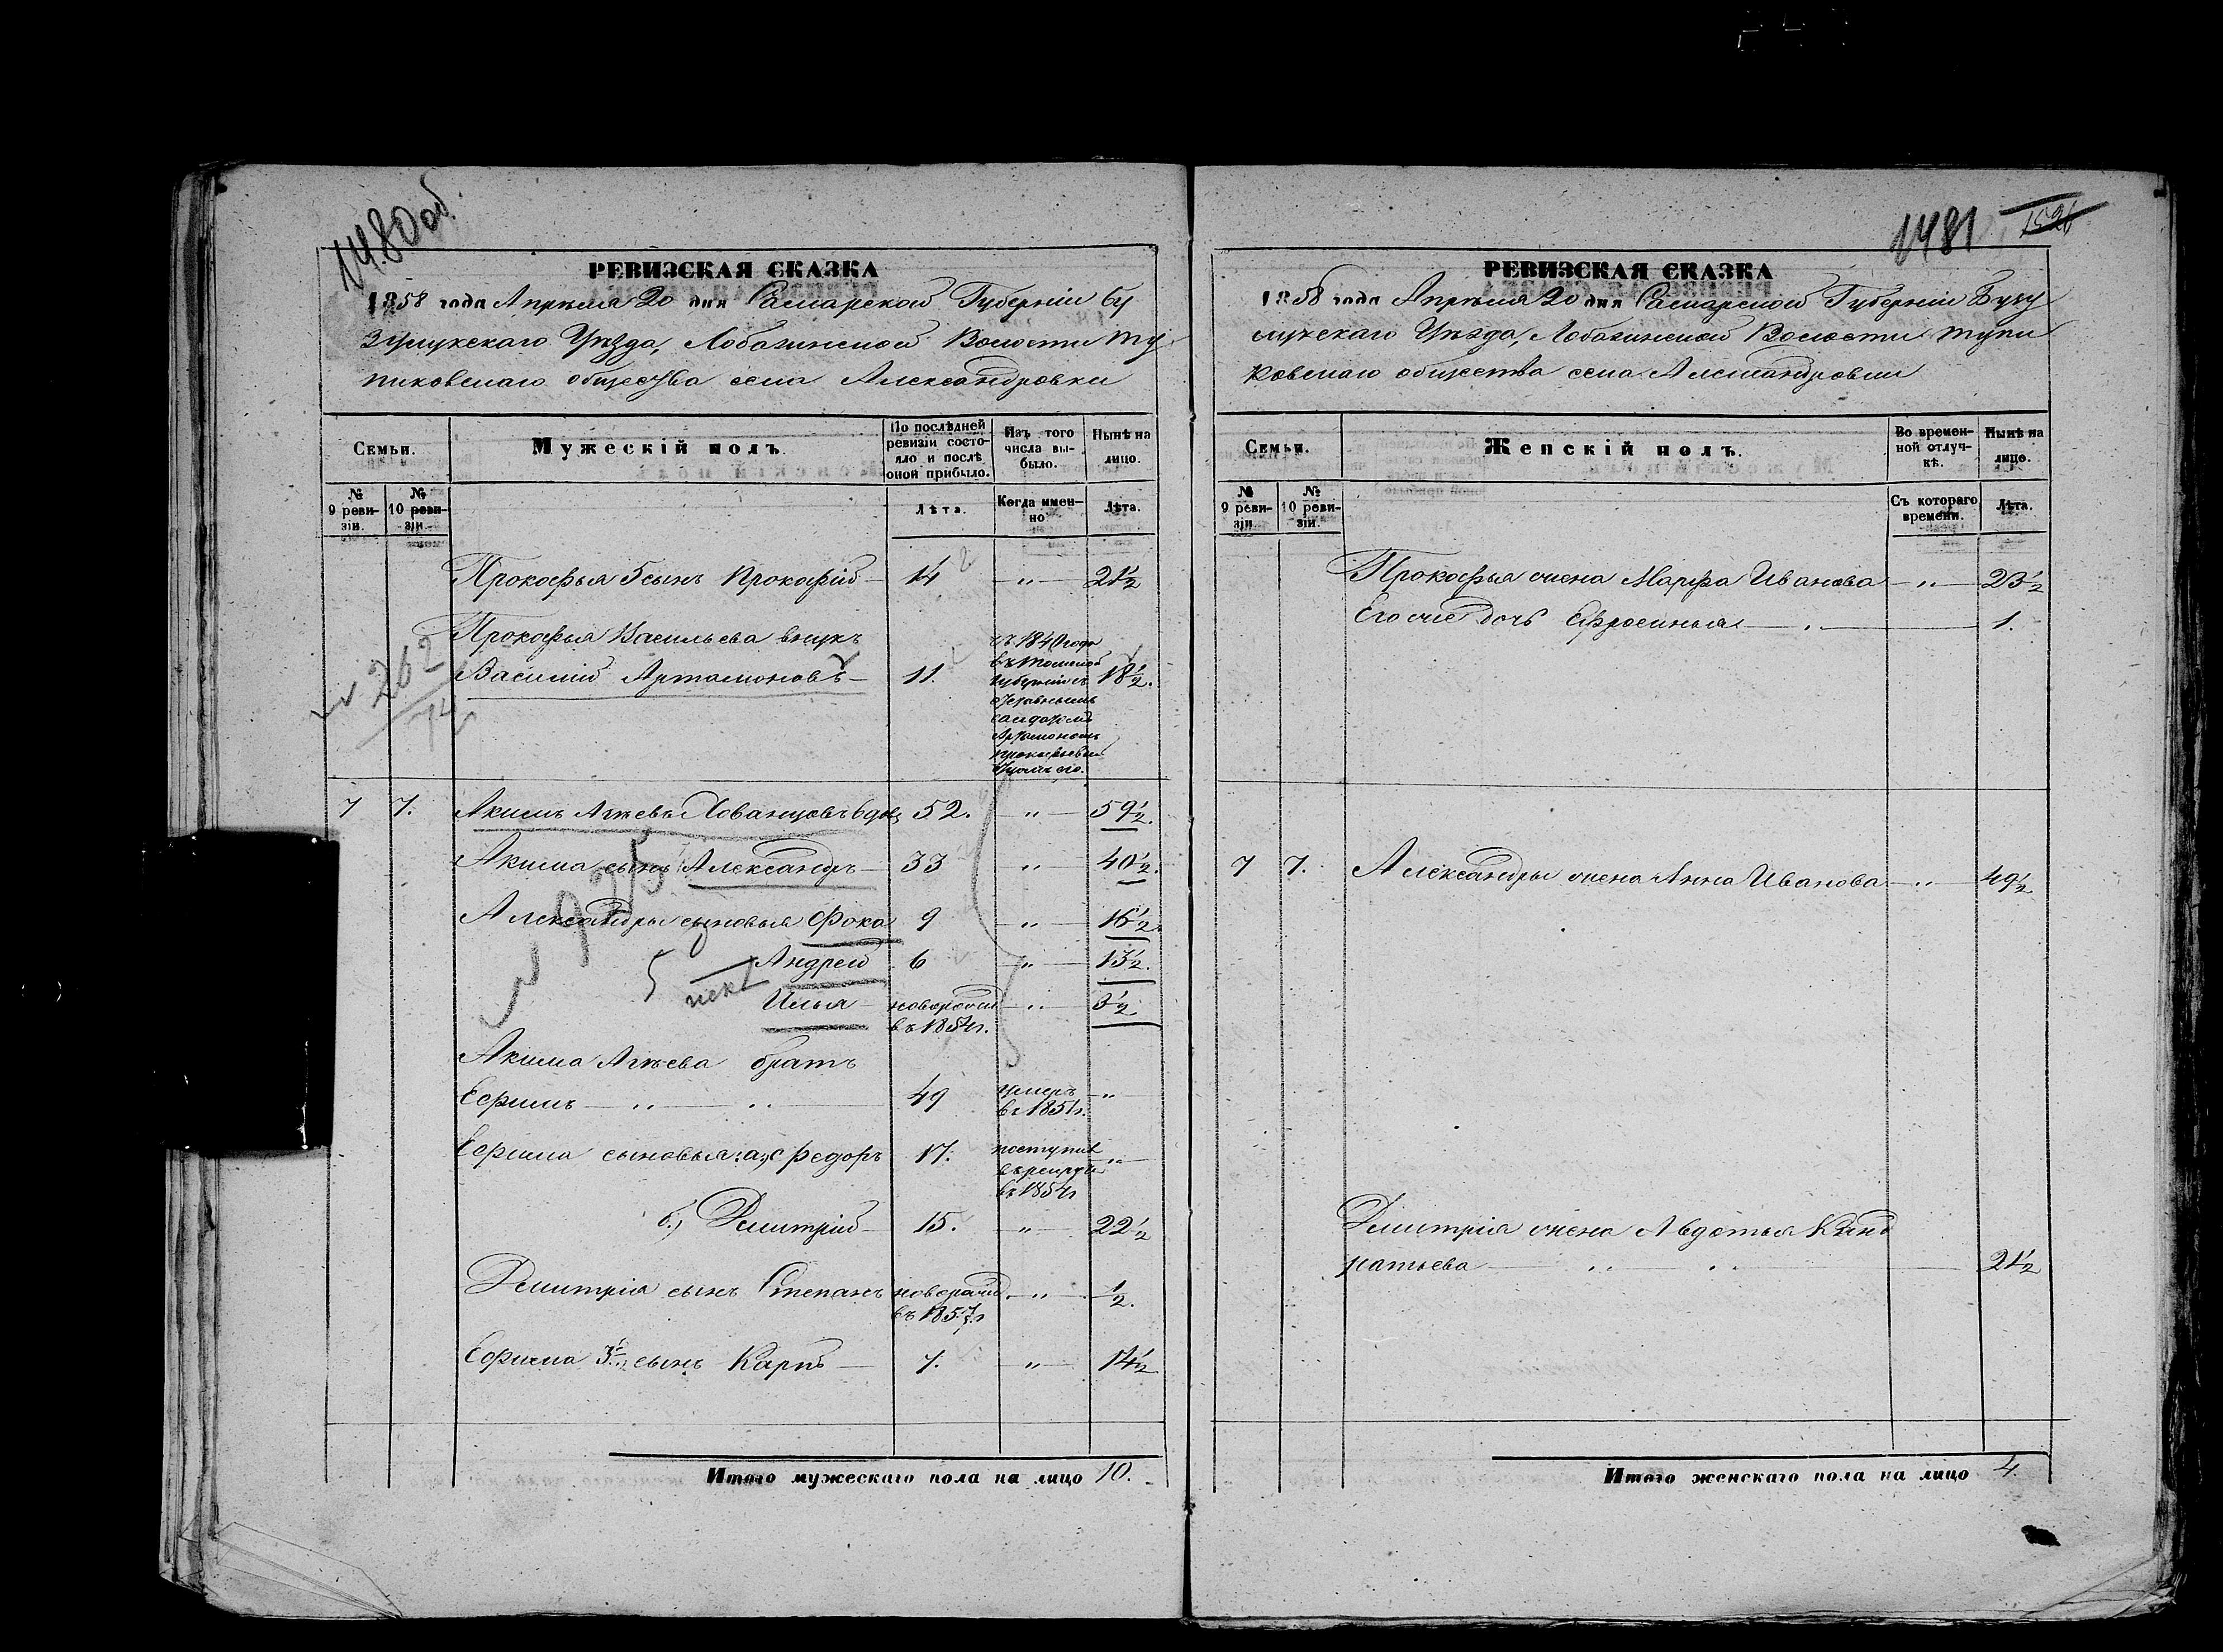 1480 об.
РЕВИЗСКАЯ СКАЗКА
1858 года Апрѣля 20 дня Самарской Губерніи Бу
зулукскаго Уѣзда, Лобазинской Волости Ту
пиковскаго общества села Александровки
Семьи.
Мужескій полъ.
По послѣдней ревизіи состо-
яло и послѣ оной прибыло.
Изъ того числа вы-
было.
Нынѣ на лицо.
№ 9 реви-
зіи.
№ 10 реви-
зіи.
Лѣта.
Когда имен-
но
Лѣта.
Прокофья 5 сынъ Прокофій 14 " 21 1/2
Прокофья Васильева внукъ
Василій Артамоновъ 11. 18 1/2.
съ 1840 года
въ Томской
губерніи съ
отцомъ его.
262
7 7. Акимъ Агѣевъ Хованцовъ вдов 52. " 59 1/2.
Акима сынъ Александръ 33 " 40 1/2.
Александры сыновья Фока 9 " 16 1/2
Андрей 6 " 13 1/2.
Илья новорожд " 3 1/2
въ 1854 г.
Акима Агѣева братъ
Ефимъ " " 49 умеръ "
въ 1851 г.
Ефима сыновья: а, Федоръ 17. поступилъ "
въ рекруты
въ 1854 г
б.) Дмитрій 15. " 22 1/2
Дмитрія сынъ Степанъ новорожд. " 1/2.
въ 1857 г
Ефима 3й сынъ Карпъ 7. " 14 1/2
Итого мужескаго пола на лицо 10.
1481
1526
РЕВИЗСКАЯ СКАЗКА
1858 года Апрѣля 20 дня Самарской Губерніи Бузу
лукскаго Уѣзда, Лобазинской Волости Тупи
ковскаго общества села Александровки
Семьи.
Женскій полъ.
Во времен-
ной отлуч-
кѣ.
Нынѣ на лицо.
№ 9 реви-
зіи.
№ 10 реви-
зіи.
Съ котораго времени.
Лѣта.
Прокофья жена Марфа Иванова " 23 1/2
Его же дочь Ефросинья " 1.
7 7. Александры жена Анна Иванова " 49 1/2
Дмитрія жена Авдотья Кинд
ратьева " " 21 1/2
Итого женскаго пола на лицо 4.